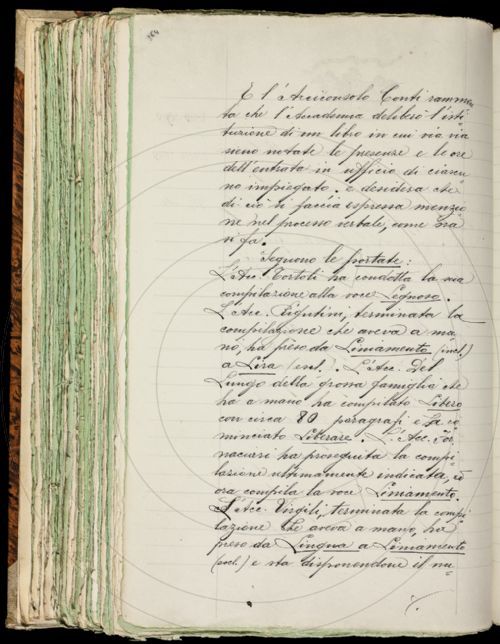 264
E l'Arciconsolo Conti rammen
ta che l'Accademia deliberò l'isti
tuzione di un libro in cui via via
sieno notate le presenze e le ore
dell'entrata in ufficio di ciascu
no impiegato: e desidera che
di ciò si faccia espressa menzio
ne nel processo verbale, come ora
si fa.
Seguono le portate:
L'Acc. Tortoli ha condotta la sua
compilazione alla voce Legnoso.
L'Acc. Rigutini, terminata la
compilazione che aveva a ma
no, ha preso da Liniamento (incl.)
a Lira (incl.). L'Acc. Del
Lungo della grossa famiglia che
ha a mano ha compilato Libero
con circa 80 paragrafi e ha co
minciato Liberare. L'Acc. For
nacciari ha proseguita la compi
lazione ultimamente indicata, ed
ora compila la voce Liniamento.
L'Acc. Virgilj, terminata la compi
lazione che aveva a mano, ha
preso da Lingua a Liniamento
(escl.) e sta disponendone il nu-